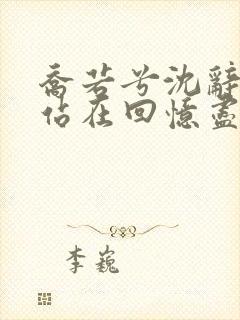 喬若兮沈辭
佔在回憶盡
李巍